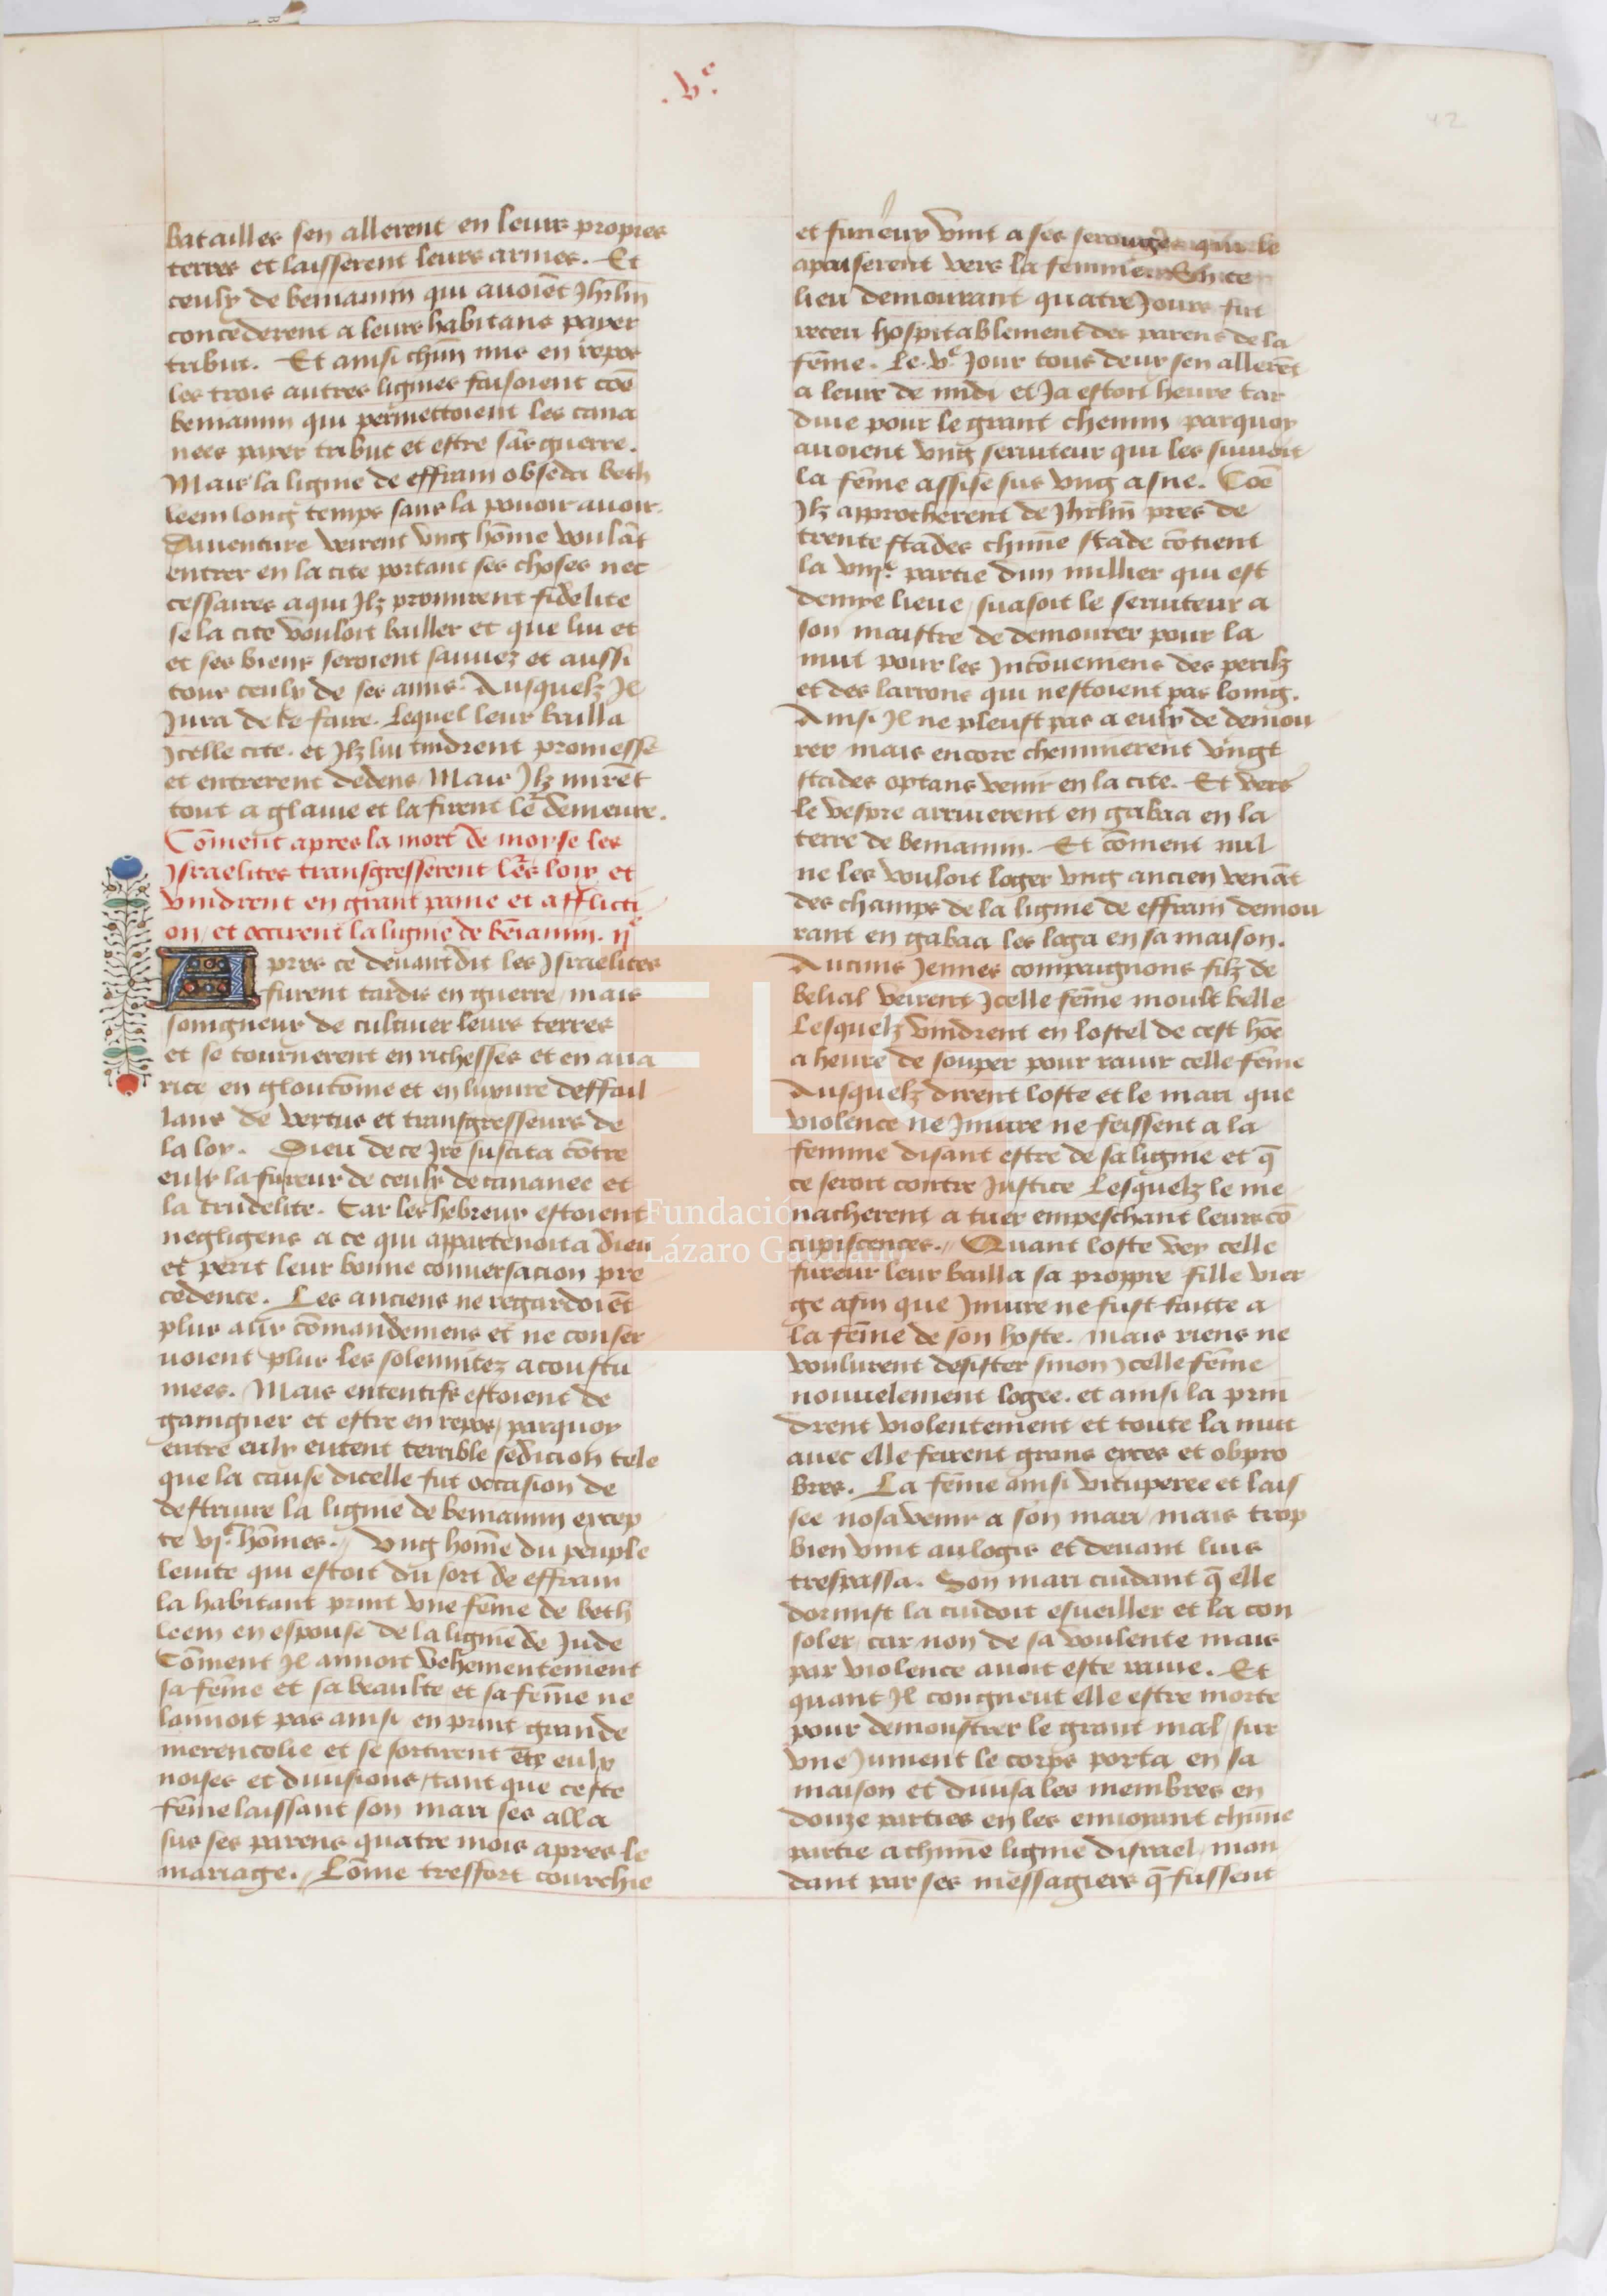 .v.e
42
batailles sen allerent en leurs propres
terres et laisserent leurs armes. Et
ceulx de beniamin qui auoiēt Jhrlm̄
concederent a leurs habitans paier
tribut. Et ainsi chūn mis en repos
les trois autres lignies faisoient cōe
beniamin qui permettoient les cana
nees paier tribut et estre sās guerre.
Mais la lignie de effraim obseda beth
leem long temps sans la pouoir auoir.
Dauenture veirent vng hōme voulāt
entrer en la cite portant ses choses nec
cessaires a qui Jlz promirent fidelite
se la cite vouloit bailler et que lui et
et ses biens seroient sauuez et aussi
tous ceulx de ses amis. Ausquelz Jl
Jura de le faire. Lequel leur bailla
Jcelle cite. et Jlz lui tindrent promesse
et entrerent dedens Mais Jlz mirēt
tout a glaiue et la firent lēr demeure.
Cōment apres la mort de moyse les
Jsraelites transgresserent lērs loix et
vindrent en grant paine et afflicti
on / et occirent la lignie de bēiamin. ij
Apres ce deuant dit les Jsraelites
furent tardis en guerre / mais
soingneux de cultiuer leurs terres
et se tournerent en richesses et en aua
rice en gloutōnie et en luxure deffail
lans de vertus et transgresseurs de
la loy. Dieu de ce Jre suscita cōtre
eulx la fureur de ceulx de cananee et
la crudelite. Car les hebreux estoient
negligens a ce qui appartenoit a dieu
et perit leur bonne conuersacion pre
cedence. Les anciens ne regardoiēt
plus aux cōmandemens et ne conser
uoient plus les solennitez acoustu
mees. Mais ententifs estoient de
gaingner et estre en repos / parquoy
entre eulx eurent terrible sedicion tele
que la cause dicelle fut occasion de
destruire la lignie de beniamin excep
te vj.c hōmes. // Vng homē du peuple
leuite qui estoit du sort de effraim
la habitant print vne fēme de beth
leem en espouse de la lignie de Jude
Cōment Jl aimoit vehementement
sa fēme et sa beaulte et sa fēme ne
laimoit pas ainsi en print grande
merencolie et se sortirent ētre eulx
noises et diuisions / tant que ceste
fēme laissant son mari ses alla
sus ses parens quatre mois apres le
mariage. // Lōme tressort courchie
et furieux vint a ses serourges qui le
apaiserent vers la femme. En ce
lieu demourant quatre Jours fut
receu hospitablement des parens de la
fēme. Le .v.e Jour tous deux sen allerēt
a leure de midi et Ja estoit heure tar
diue pour le grant chemin parquoy
auoient vng seruiteur qui les suiuoit
la fēme assise sus vng asne. Cōe
Jlz approcherent de Jhrlm̄ pres de
trente stades chūne stade cōtient
la viij.e partie dun millier qui est
demye lieue / suasoit le seruiteur a
son maistre de demourer pour la
nuit pour les Jncōueniens des perilz
et des larrons qui nestoient pas loing.
Ainsi Jl ne pleust pas a eulx de demou
rer mais encore cheminerent vingt
stades optans venir en la cite. Et vers
le vespre arriuerent en gabaa en la
terre de beniamin. Et cōment nul
ne les vouloit loger vng ancien venāt
des champs de la lignie de effraim demou
rant en gabaa les loga en sa maison.
Aucuns Jennes compaignons filz de
belial veirent Jcelle fēme moult belle
Lesquelz vindrent en lostel de cest hōe
a heure de souper pour rauir celle fēme
Ausquelz dirent loste et le mari que
violence ne Jniure ne feissent a la
femme disant estre de sa lignie et q̄
ce seroit contre Justice Lesquelz le me
nacherent a tuer empeschant leurs cō
cupiscences. // Quant loste vey celle
fureur leur bailla sa proppre fille vier
ge afin que Jniure ne fust faitte a
la fēme de son hoste. mais riens ne
voulurent desister sinon Jcelle fēme
nouuelement logee. et ainsi la prin
drent violentement et toute la nuit
auec elle feirent grans exces et obpro
bres. La fēme ainsi vituperee et lais
see nosa venir a son mari / mais trop
bien vint au logis et deuant luis
trespassa. Son mari cuidant q̄ elle
dormist la cuidoit esueiller et la con
soler / car non de sa voulente mais
par violence auoit este rauie. Et
quant Jl congneut elle estre morte
pour demonstrer le grant mal / sur
vne Jument le corps porta en sa
maison et diuisa les membres en
douze parties en les enuoiant chūne
partie a chūne lignie disrael / man
dant par ses messagiers q̄ fussent
FLG
Fundación
Lázaro Galdiano